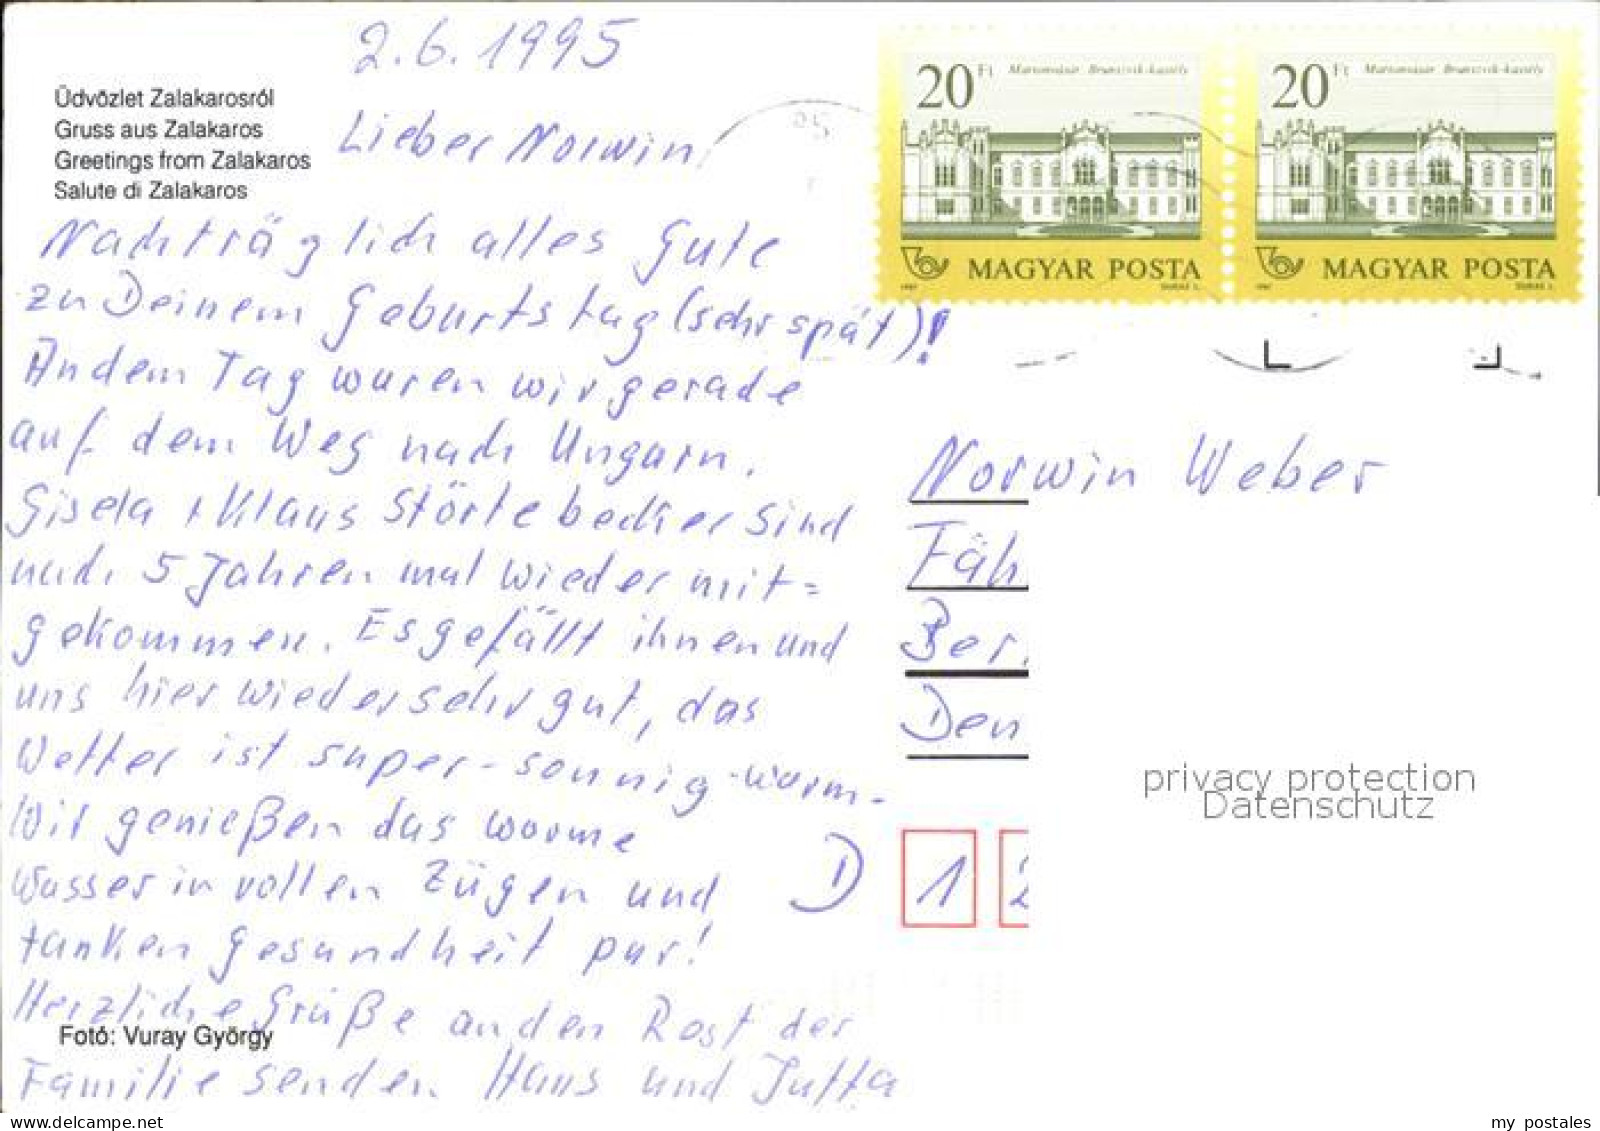 2.6.1995
Üdvözlet Zalakarosról
Gruss aus Zalakaros
Greetings from Zalakaros
Salute di Zalakaros
Lieber Norwin,
Nachträglich alles Gute
zu Deinem Geburtstag (sehr spät)!
An dem Tag waren wir gerade
auf dem Weg nach Ungarn.
Gisela + Klaus Störtebecker sind
nach 5 Jahren mal wieder mit=
gekommen. Es gefällt ihnen und
uns hier wieder sehr gut, das
Wetter ist super-sonnig-warm-
Wir genießen das warme
Wasser in vollen Zügen und
tanken Gesundheit pur!
Herzliche Grüße an den Rest der
Familie senden Hans und Jutta
Fotó: Vuray György
20 Ft Martonvásár Brunszvik-kastély
MAGYAR POSTA
20 Ft Martonvásár Brunszvik-kastély
MAGYAR POSTA
95
Norwin Weber
Fäh
Ber.
Den
D 1 2
privacy protection
Datenschutz
delcampe.net
my_postales